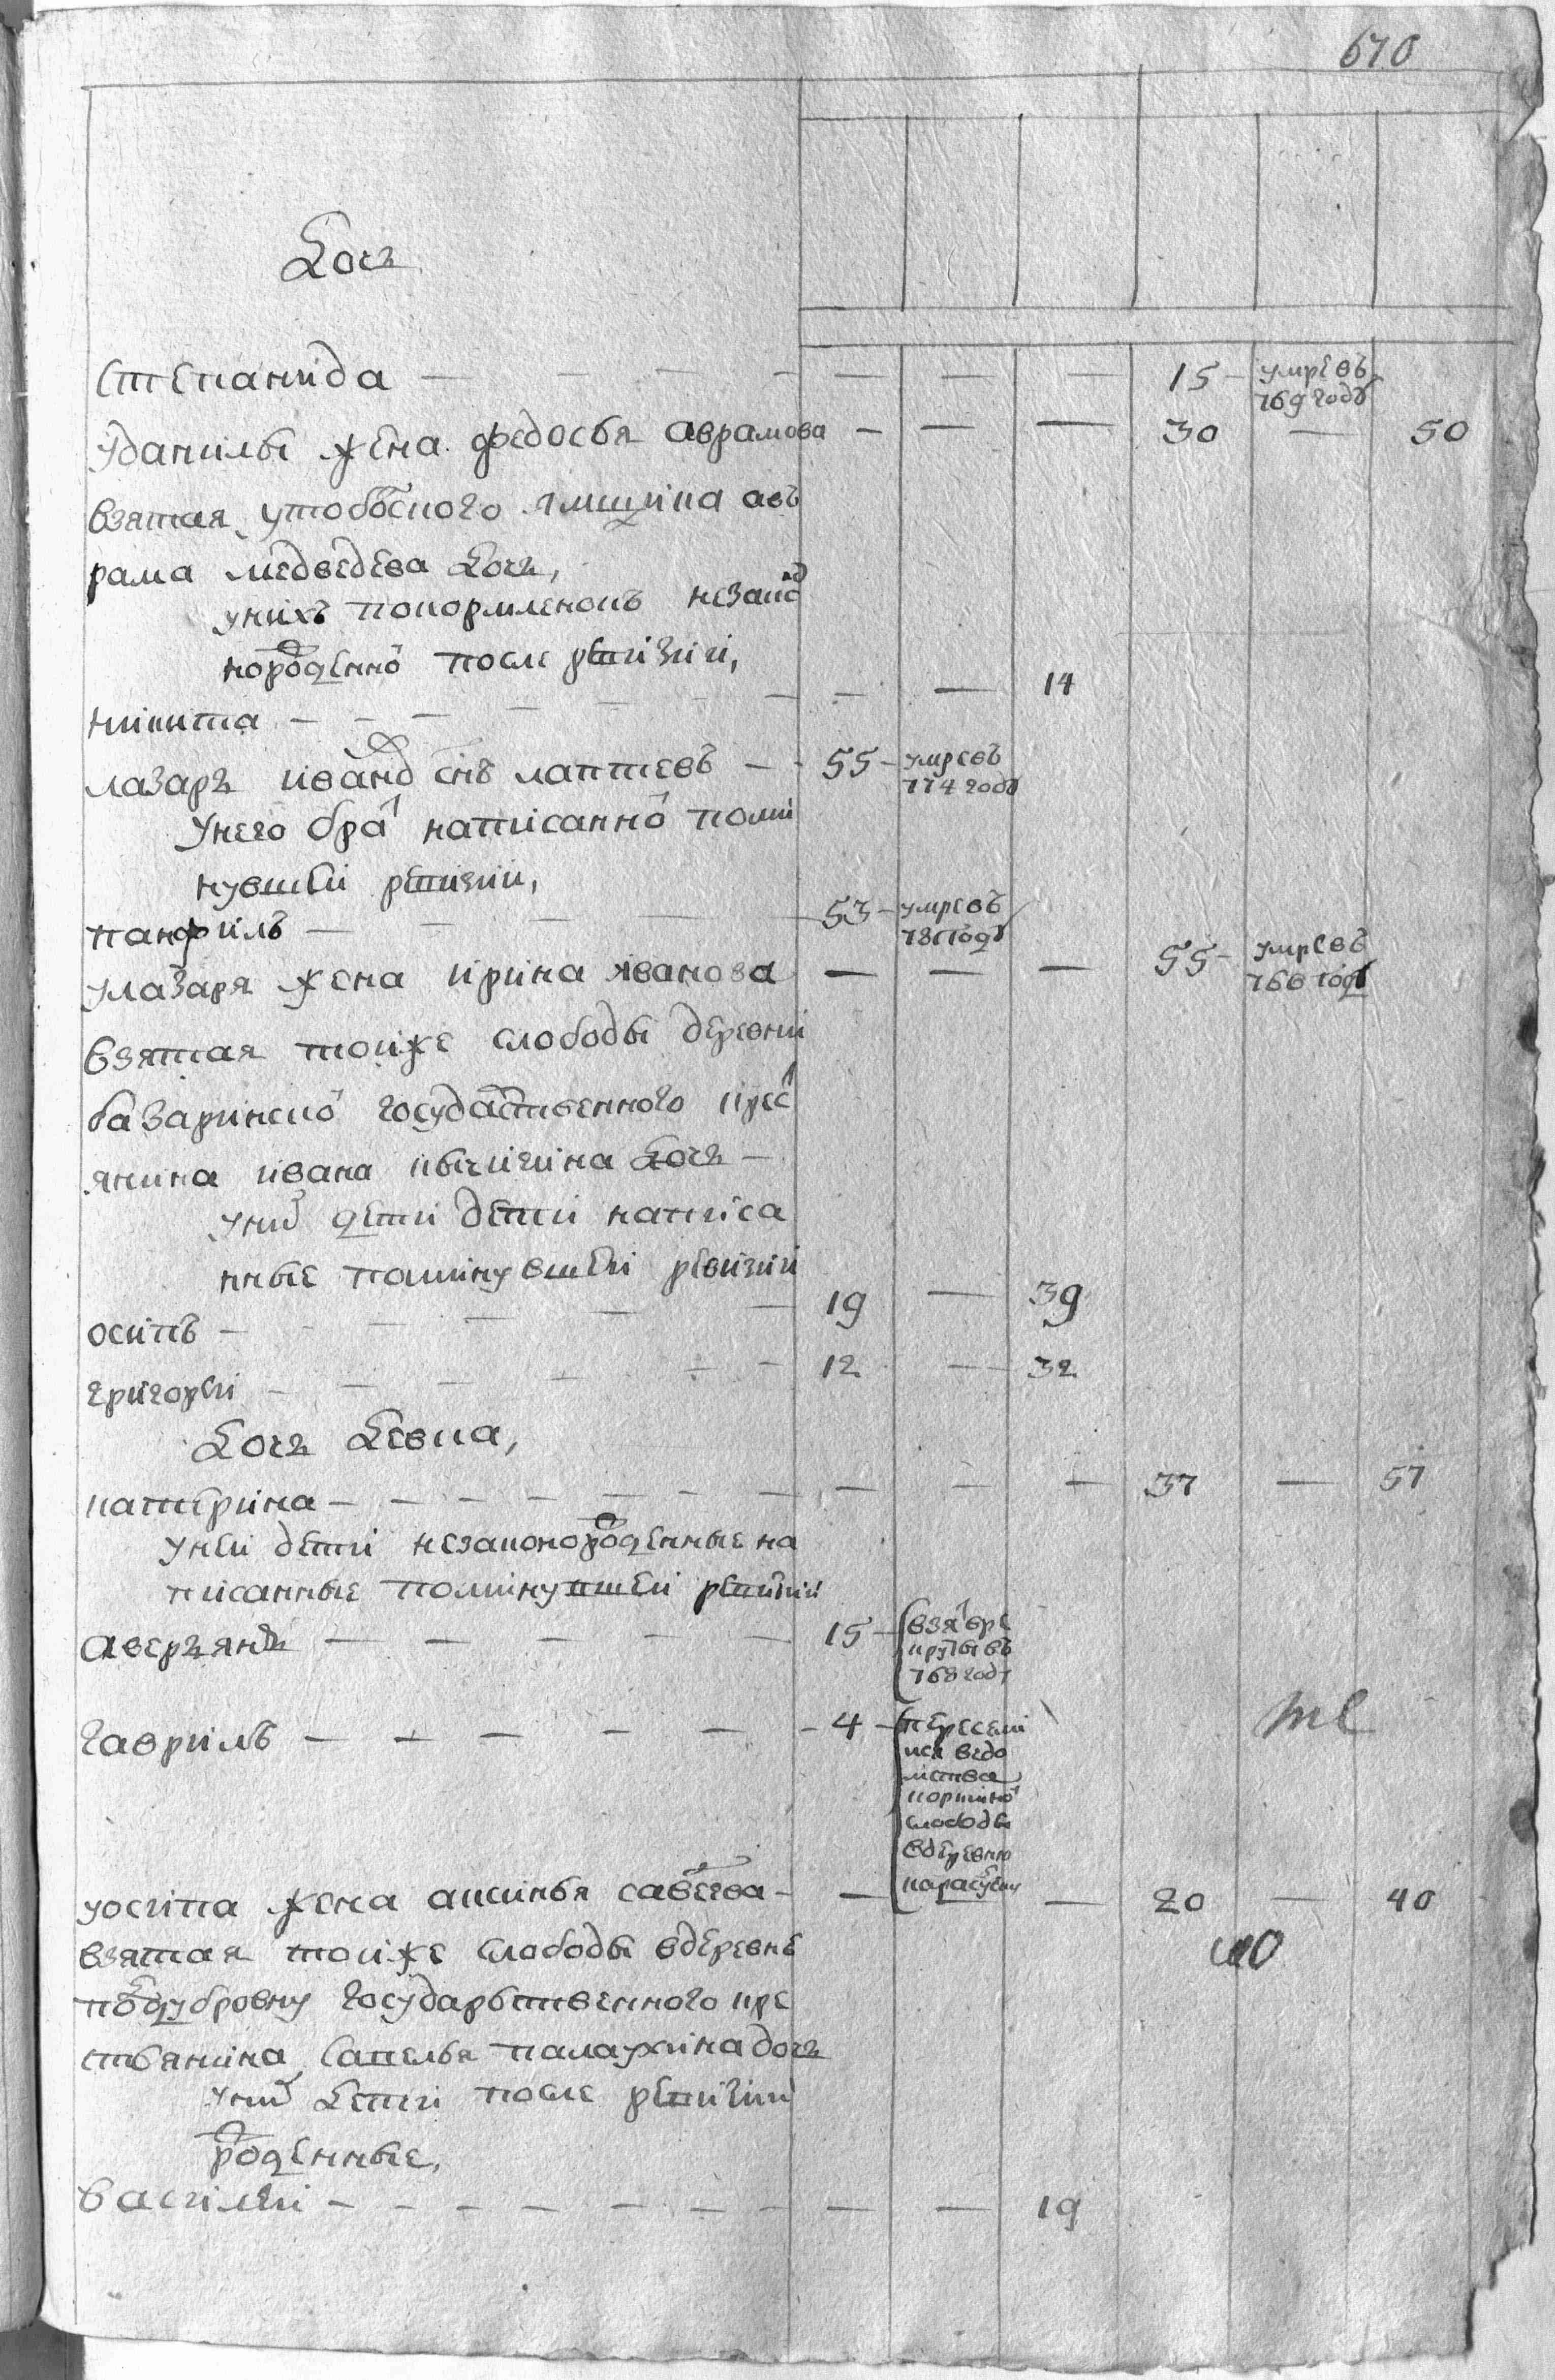 670
Дочь
степанида — — — — — — — 15 — умре въ 769 году
у данилы жена федосья аврамова — — — 30 — 50
взятая у тобольского ямщика ав
рама медведева дочь,
у нихъ покормленокъ незако
норожденной после ревизіи,
никита — — — — — — — — 14
лазарь ивановъ снъ лаптевъ — 55 — умре въ 774 году
у него братъ написанной по ми
нувшей ревизіи,
панфилъ — — — — 53 — умре въ 781 году
у лазаря жена ирина иванова — — — 55 — умре въ 766 году
взятая той же слободы деревни
базаринской государственного крес
янина ивана кычигина дочь —
у них дети дети написа
нные по минувшей ревизіи
осипъ — — — — — 19 — 39
григорей — — — — — — 12 — 32
дочь девка,
катерина — — — — — — — — — — 37 — 57
у ней дети незаконорожденные на
писанные по минувшей ревизіи
аверьянъ — — — — — 15 — взятъ в ре круты въ 768 году
гаврилъ — — — — — — 4 — переселился ведо мства слободы в деревню
у осипа жена аксинья савеева — — — 20 — 40
взятая той же слободы в деревне
поддубровну государьственного кре
стьянина савелья палахина дочь
у них дети после ревизіи
рожденные,
василей — — — — — — — — — 19